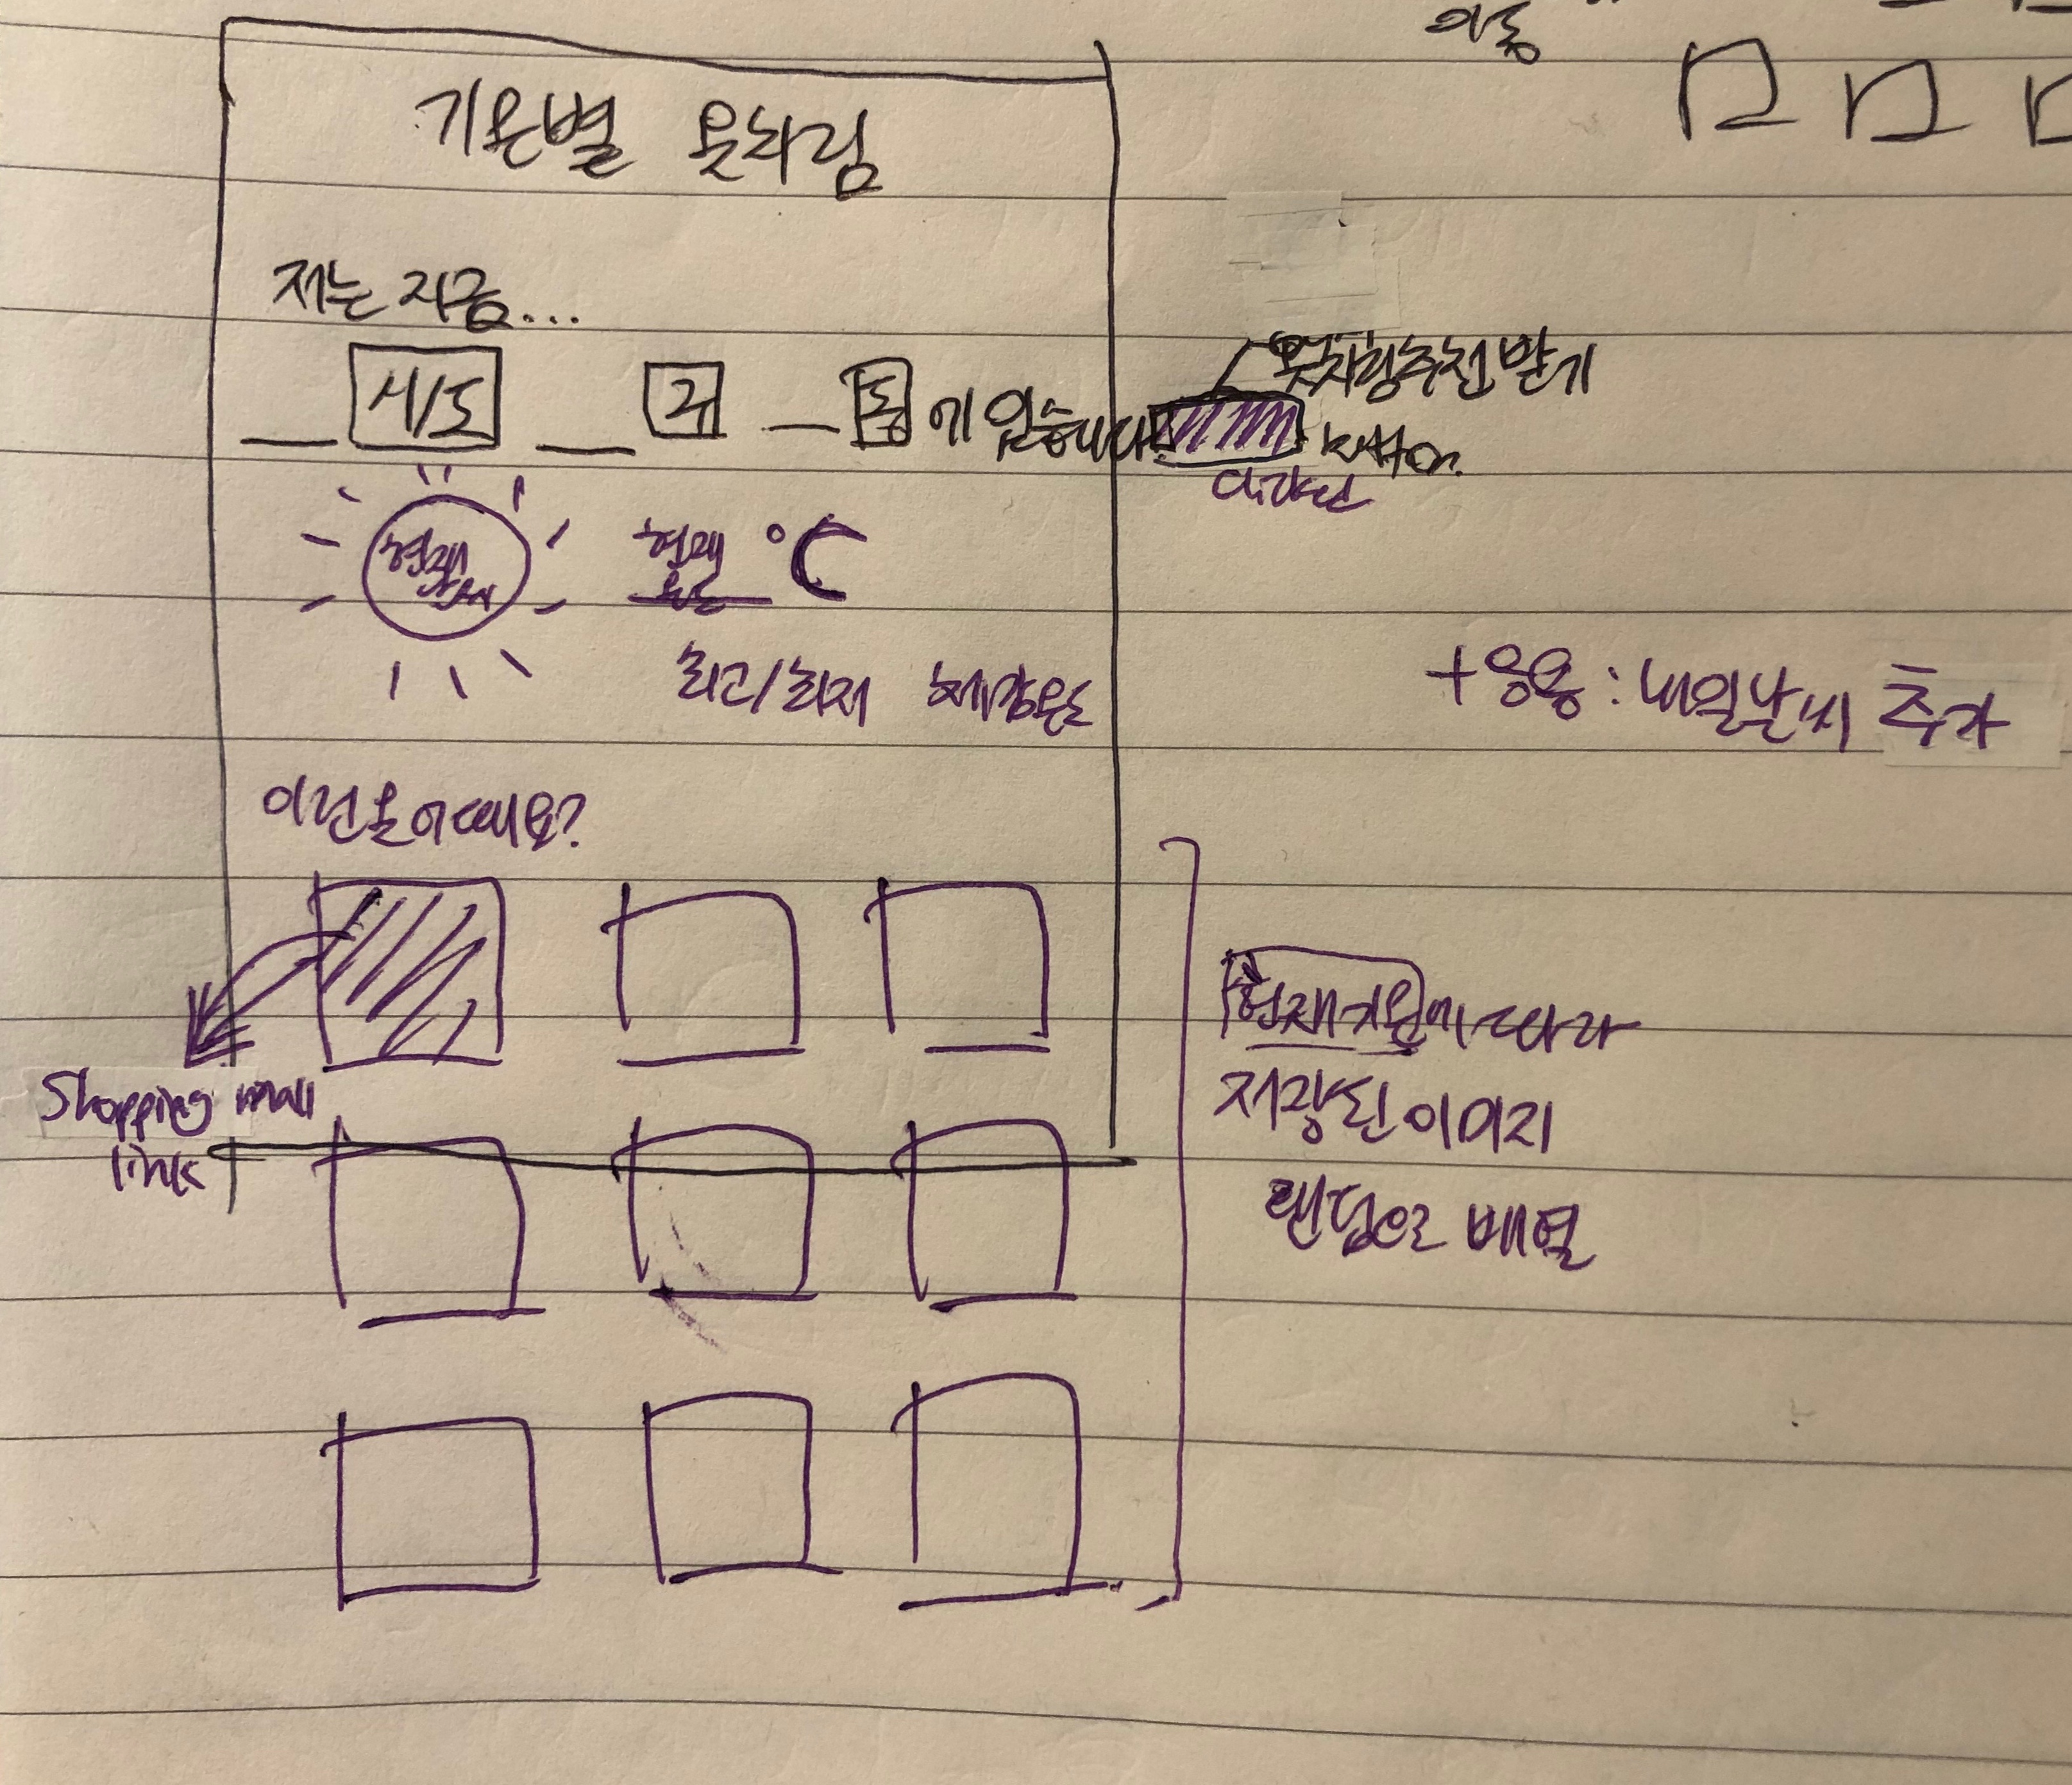 이동
기온별 옷차림
저는 지금...
__ 시/도 __ 구 __ 동 에 있습니다.
옷차림추천 받기
button.
clicked
현재 날씨
현재 온도 °C
최고/최저 체감온도
+응용 : 내일날씨 추가
이런옷어때요?
Shopping mall
link
현재기온에 따라
저장된 이미지
랜덤으로 배열